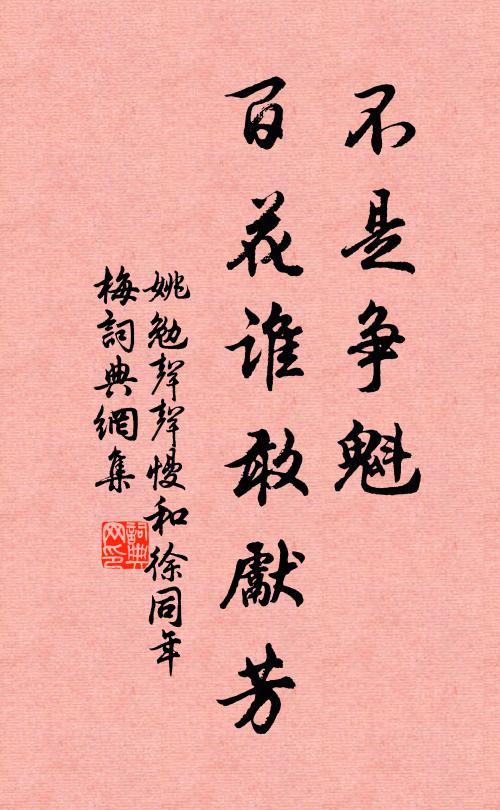 不是争魁
百花谁敢献芳
姚勉聲聲慢和徐同年
梅詞典網集
詞典网印